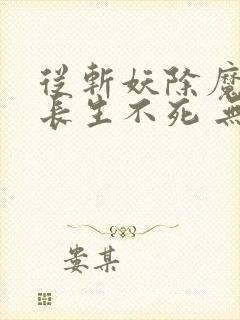 從斬妖除魔
長生不死 無
婁某